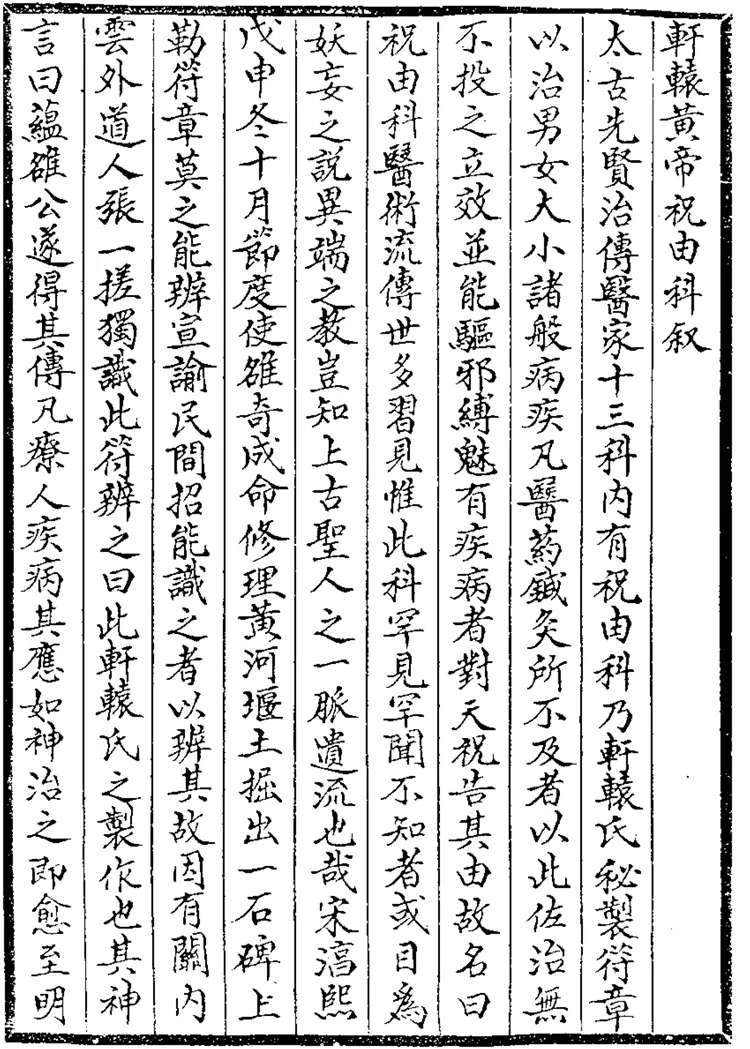 軒轅黃帝祝由科叙
太古先賢治傳醫家十三科内有祝由科乃軒轅氏秘製符章
以治男女大小諸般病疾凡醫药鍼灸所不及者以此佐治無
不投之立效並能驅邪縛魅有疾病者對天祝告其由故名曰
祝由科醫術流傳世多習見惟此科罕見罕聞不知者或目為
妖妄之說異端之教豈知上古聖人之一脈遺流也哉宋淳熙
戊申冬十月節度使雒奇成命修理黃河堰土掘出一石碑上
勒符章莫之能辨宣諭民間招能識之者以辨其故因有關内
雲外道人張一搓獨識此符辨之曰此軒轅氏之製作也其神
言曰蘊雒公遂得其傳凡療人疾病其應如神治之即愈至明